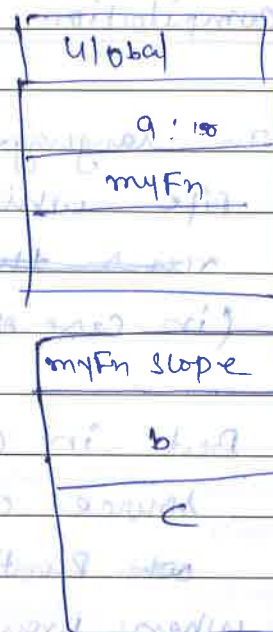 Global
a :
myFn
myFn scope
b
c